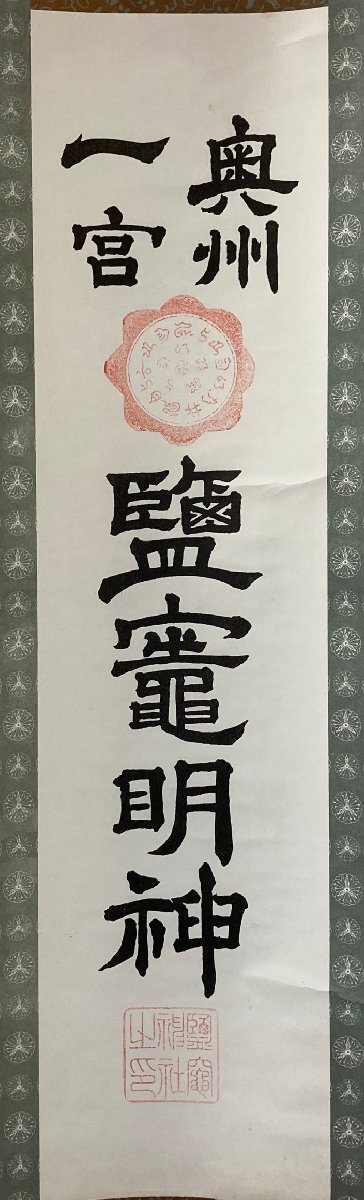 奥州
一宮
鹽竈明神
鹽竈
神社
之印